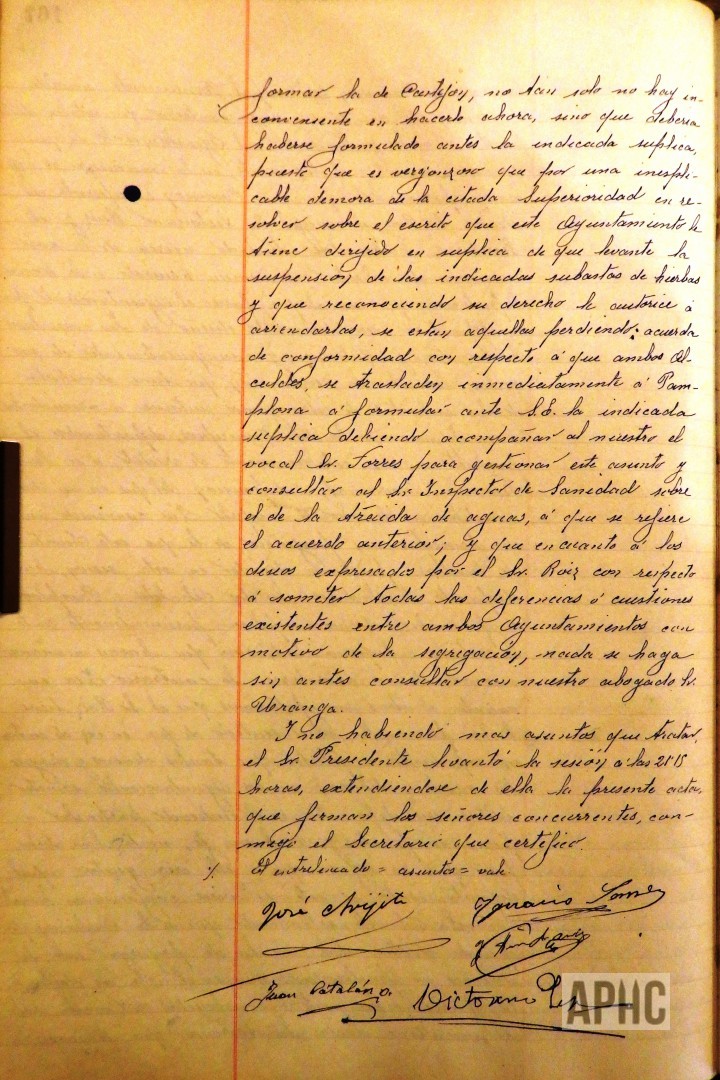 formar la de Castejon, no tan solo no hay in-
conveniente en hacerlo ahora, sino que deberia
haberse formulado antes la indicada suplica,
puesto que es vergonzoso que por una inespli-
cable demora de la citada Superioridad en re-
solver sobre el escrito que este Ayuntamiento le
tiene dirijido en suplica de que levante la
suspension de las indicadas subastas de hierbas
y que reconociendo su derecho le autorice á
arrendarlas, se estan aquellas perdiendo; acuerda
de conformidad con respecto á que ambos Al-
caldes, se trasladen inmediatamente á Pam-
plona á formular ante S.E. la indicada
suplica debiendo acompañar al nuestro el
vocal Sr. Torres para gestionar este asunto y
consultar al Sr. Inspector de Sanidad sobre
el de la traida de aguas, á que se refiere
el acuerdo anterior; y que en cuanto á los
deseos expresados por el Sr. Roiz con respecto
á someter todas las deferencias ó cuestiones
existentes entre ambos Ayuntamientos con
motivo de la segregación, nada se haga
sin antes consultar con nuestro abogado Sr.
Uranga.
Y no habiendo mas asuntos que tratar,
el Sr. Presidente levantó la sesión á las 21'15
horas, extendiendose de ella la presente acta,
que firman los señores concurrentes, con-
migo el Secretario que certifico.
El entrelineado = asuntos = vale
José
Juan Catalán
Victorino
APHC